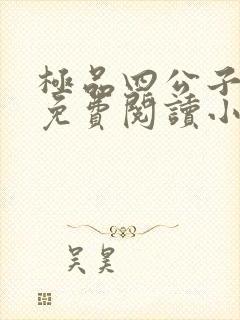 極品四公子
免費閱讀小
吴昊